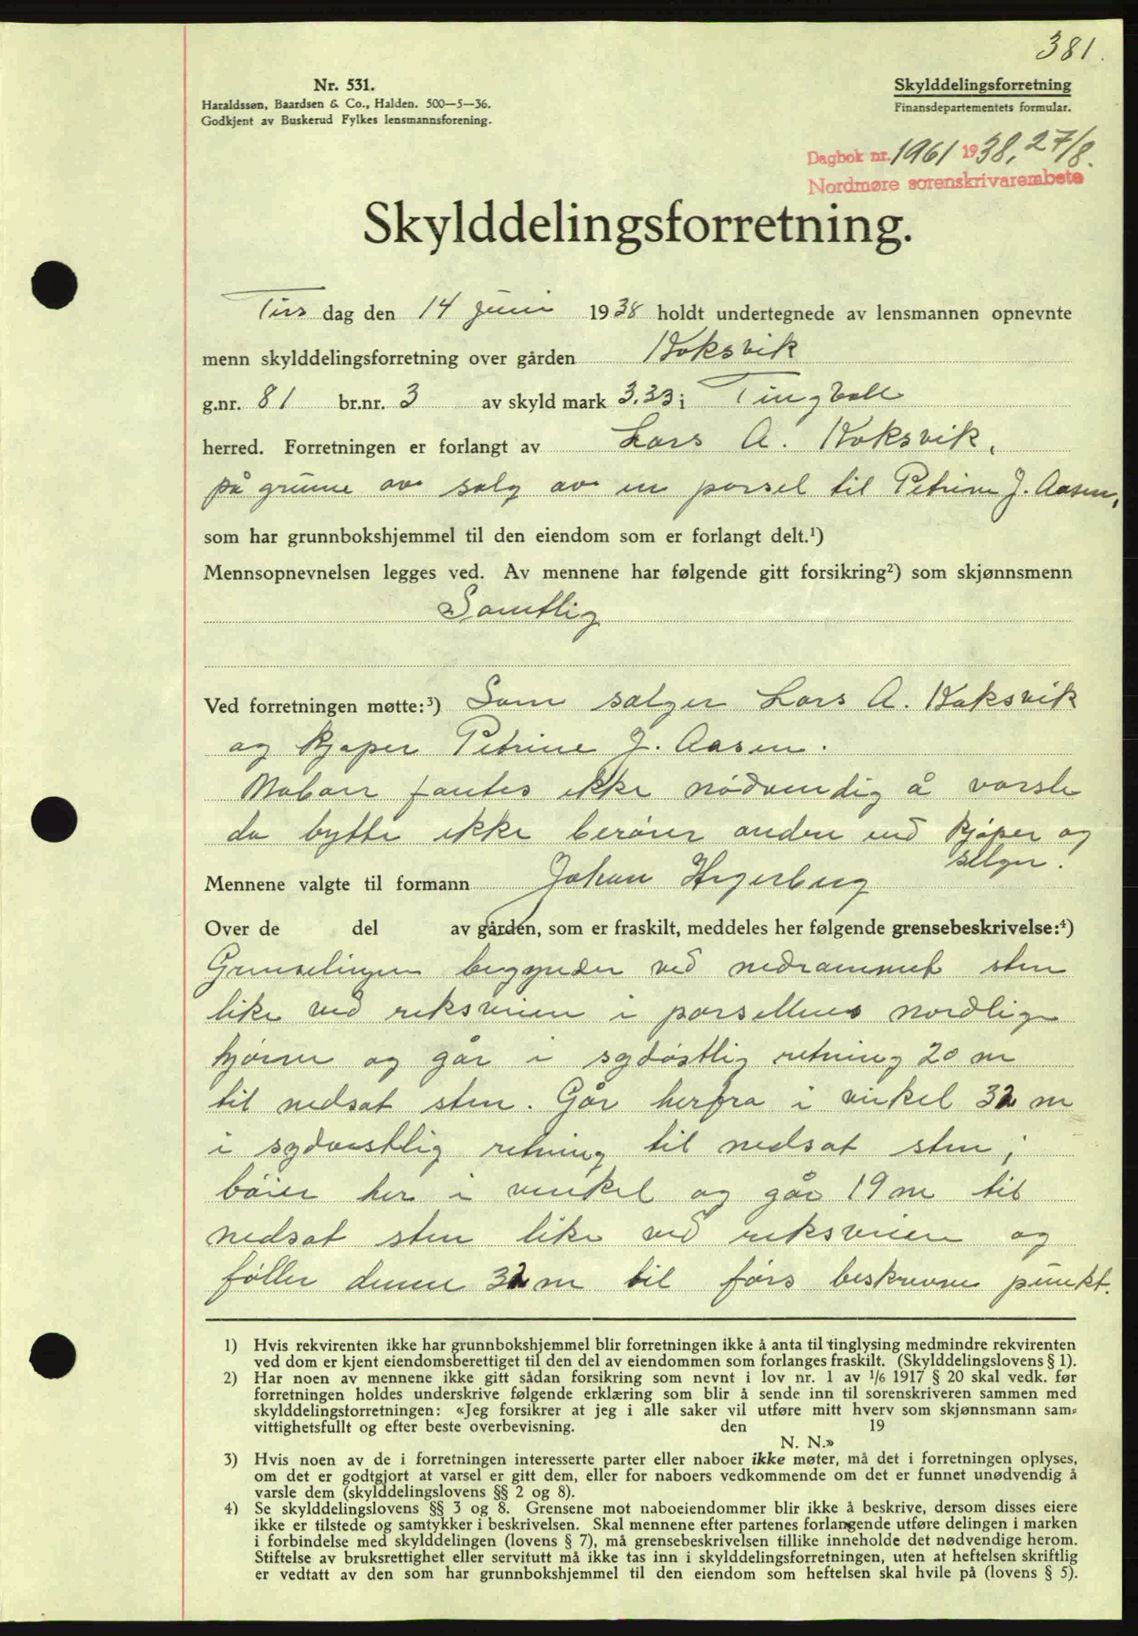 381.
Nr. 531.
Haraldssøn, Baardsen & Co., Halden. 500—5—36.
Godkjent av Buskerud Fylkes lensmannsforening.
Skylddelingsforretning
Finansdepartementets formular.
Dagbok nr. 1961 1938, 27/8.
Nordmøre sorenskrivarembete
Skylddelingsforretning.
Tirs dag den 14 juni 1938 holdt undertegnede av lensmannen opnevnte
menn skylddelingsforretning over gården Koksvik
g.nr. 81 br.nr. 3 av skyld mark 3.33 i Tingvoll
herred. Forretningen er forlangt av Lars A. Koksvik,
på grunne av salg av en parsel til Petrine J. Aasen,
som har grunnbokshjemmel til den eiendom som er forlangt delt.¹)
Mennsopnevnelsen legges ved. Av mennene har følgende gitt forsikring²) som skjønnsmenn
Samtlig
Ved forretningen møtte:³) Som selger Lars A. Koksvik
og kjøper Petrine J. Aasen.
Naboer fantes ikke nødvendig å varsle
da bytte ikke berører anden end kjøper og
selger.
Mennene valgte til formann Johan Hegerberg
Over de del av gården, som er fraskilt, meddeles her følgende grensebeskrivelse:⁴)
Grenselinjen begynder ved nedrammet sten
like ved reksveien i parsellens nordlige
hjørne og går i sydøstlig retning 20 m
til nedsat sten. Går herfra i vinkel 32 m
i sydvestlig retning til nedsat sten;
bøier her i venkel og går 19 m til
nedsat sten like ved reksveien og
føller denne 32 m til førs beskrevne punkt.
1) Hvis rekvirenten ikke har grunnbokshjemmel blir forretningen ikke å anta til tinglysing medmindre rekvirenten
ved dom er kjent eiendomsberettiget til den del av eiendommen som forlanges fraskilt. (Skylddelingslovens § 1).
2) Har noen av mennene ikke gitt sådan forsikring som nevnt i lov nr. 1 av 1/6 1917 § 20 skal vedk. før
forretningen holdes underskrive følgende erklæring som blir å sende inn til sorenskriveren sammen med
skylddelingsforretningen: «Jeg forsikrer at jeg i alle saker vil utføre mitt hverv som skjønnsmann sam-
vittighetsfullt og efter beste overbevisning. den 19
N. N.»
3) Hvis noen av de i forretningen interesserte parter eller naboer ikke møter, må det i forretningen oplyses,
om det er godtgjort at varsel er gitt dem, eller for naboers vedkommende om det er funnet unødvendig å
varsle dem (skylddelingslovens §§ 2 og 8).
4) Se skylddelingslovens §§ 3 og 8. Grensene mot naboeiendommer blir ikke å beskrive, dersom disses eiere
ikke er tilstede og samtykker i beskrivelsen. Skal mennene efter partenes forlangende utføre delingen i marken
i forbindelse med skylddelingen (lovens § 7), må grensebeskrivelsen tillike inneholde det nødvendige herom.
Stiftelse av bruksrettighet eller servitutt må ikke tas inn i skylddelingsforretningen, uten at heftelsen skriftlig
er vedtatt av den som har grunnbokshjemmel til den eiendom som heftelsen skal hvile på (lovens § 5).